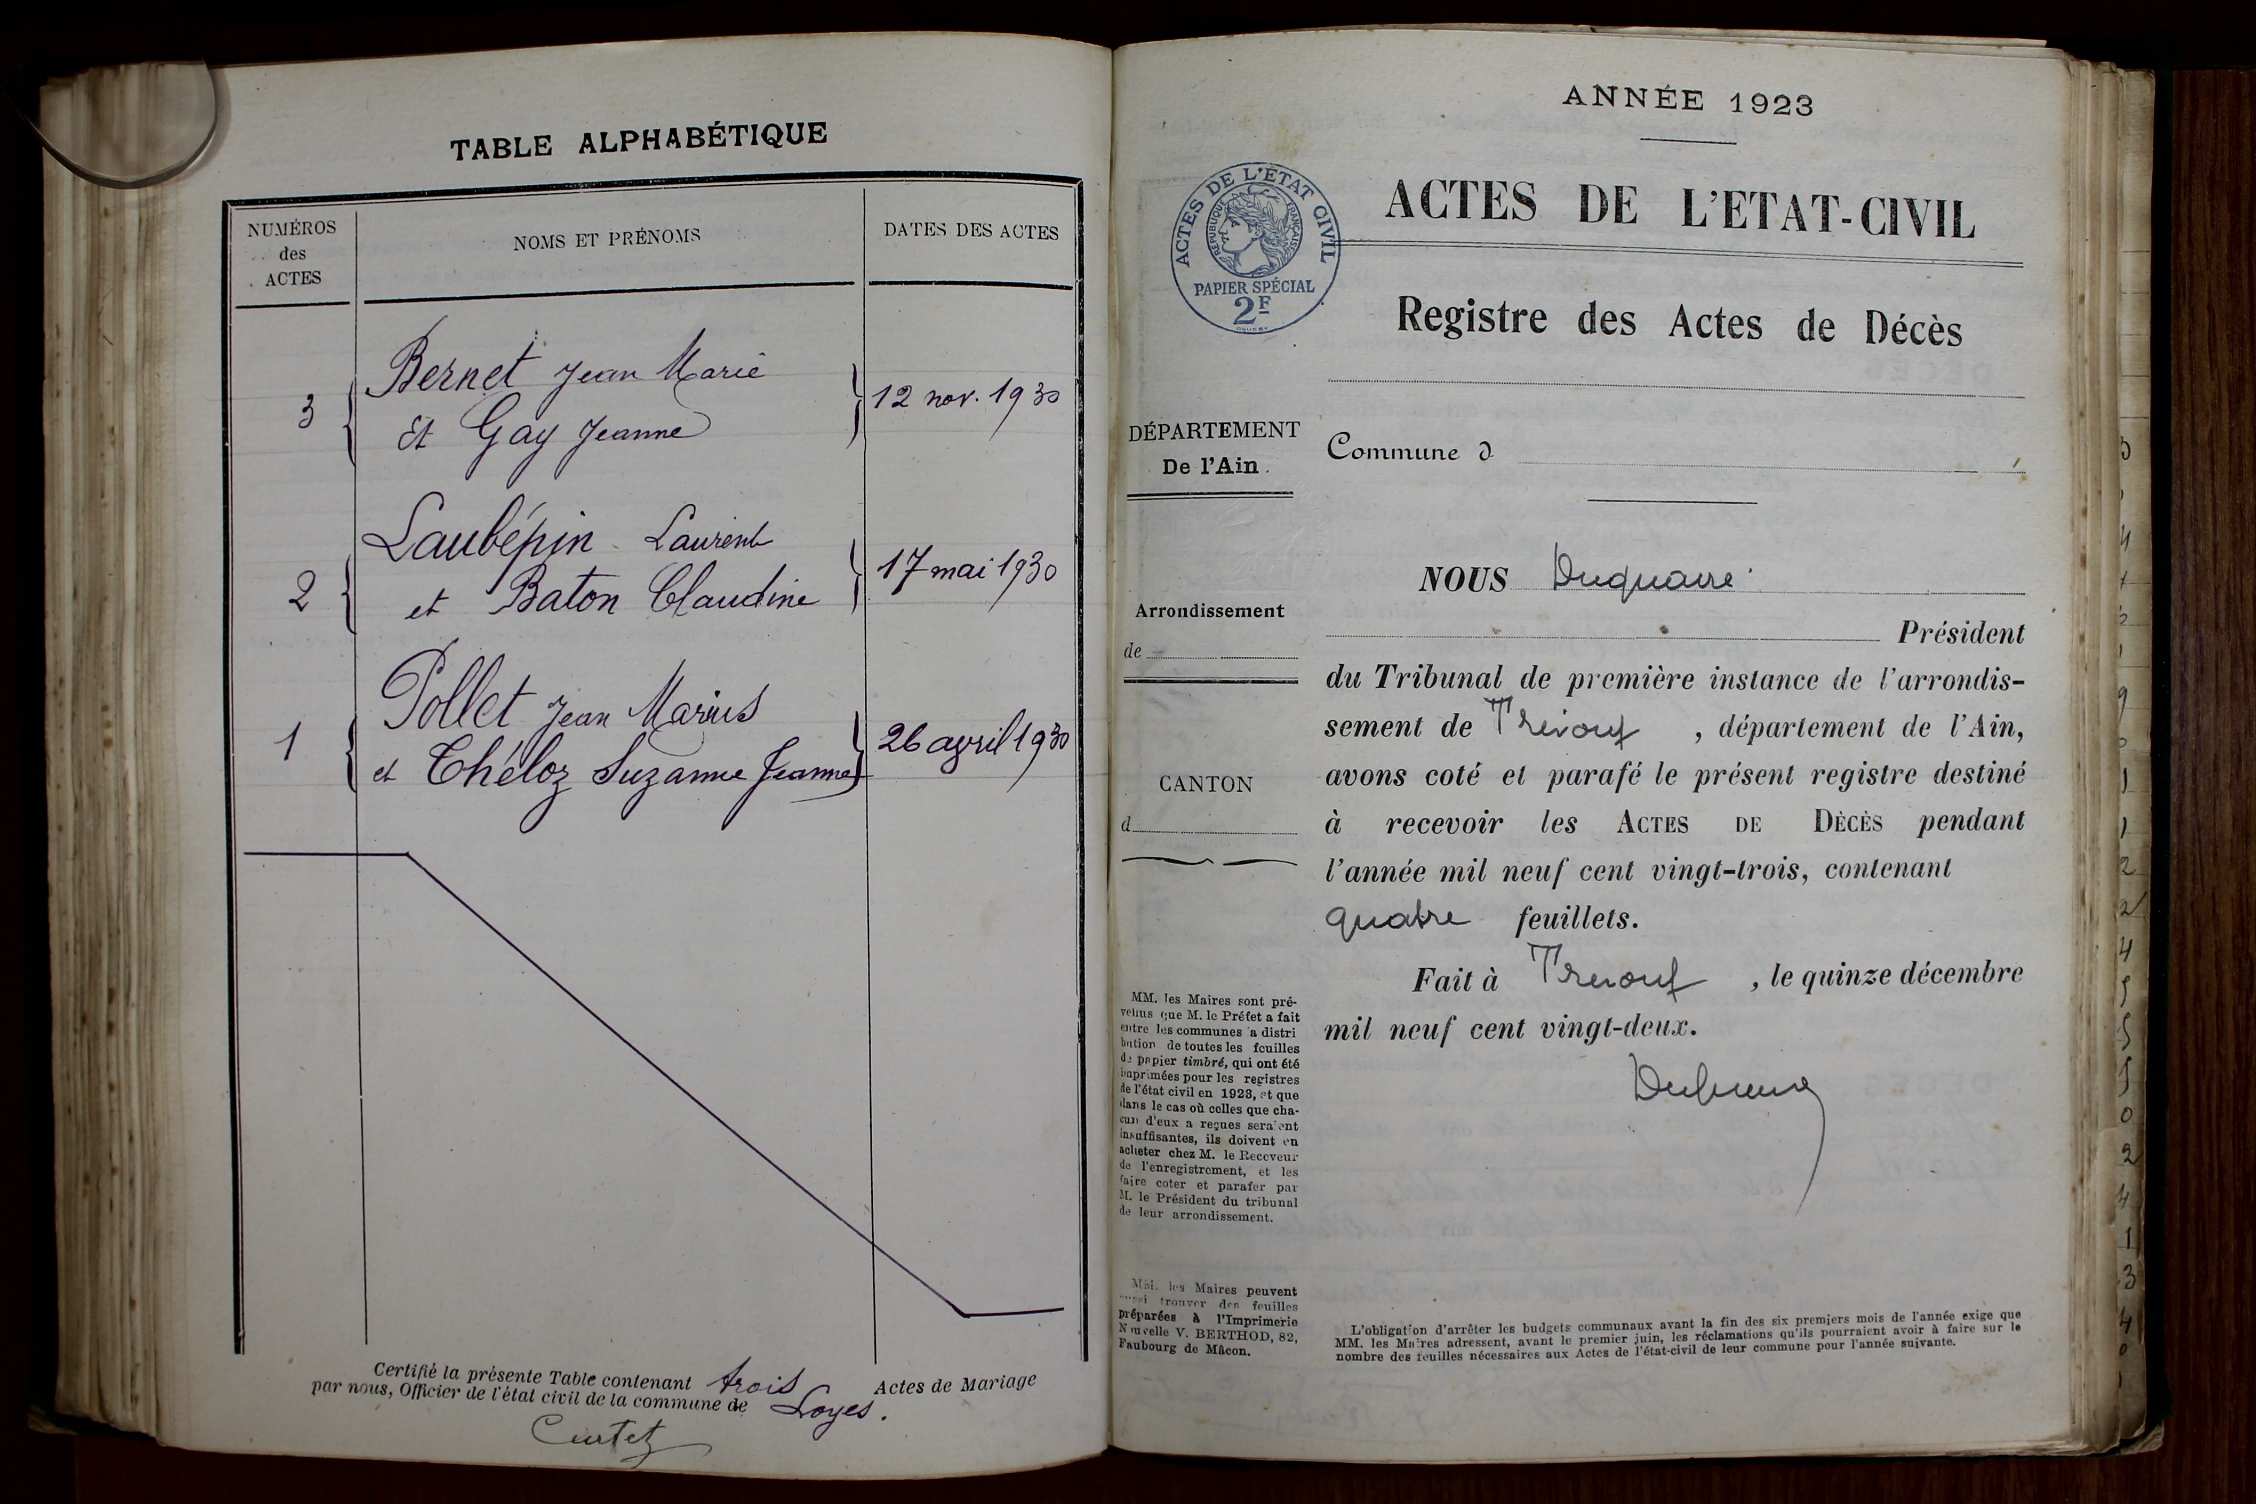 TABLE ALPHABÉTIQUE
NUMÉROS
des
ACTES
NOMS ET PRÉNOMS
DATES DES ACTES
3
Bernet Jean Marie
et Gay Jeanne
12 nov. 1930
2
Laubépin Laurent
et Baton Claudine
17 mai 1930
1
Pollet Jean Marius
et Théloz Suzanne Jeanne
26 avril 1930
Certifié la présente Table contenant trois Actes de Mariage
par nous, Officier de l'état civil de la commune de Loyes.
Curtet
ANNÉE 1923
ACTES DE L'ÉTAT CIVIL
RÉPUBLIQUE FRANÇAISE
PAPIER SPÉCIAL
2F
ACTES DE L'ETAT-CIVIL
Registre des Actes de Décès
DÉPARTEMENT
De l'Ain.
Arrondissement
de
CANTON
d
MM. les Maires sont pré-
venus que M. le Préfet a fait
entre les communes a distri
bution de toutes les feuilles
de papier timbré, qui ont été
imprimées pour les registres
de l'état civil en 1923, et que
dans le cas où celles que cha-
cun d'eux a reçues seraient
insuffisantes, ils doivent en
acheter chez M. le Receveur
de l'enregistrement, et les
faire coter et parafer par
M. le Président du tribunal
de leur arrondissement.
MM. les Maires peuvent
aussi trouver des feuilles
préparées à l'Imprimerie
Nouvelle V. BERTHOD, 82,
Faubourg de Mâcon.
Commune d
NOUS Duquaire
Président
du Tribunal de première instance de l'arrondis-
sement de Trévoux, département de l'Ain,
avons coté et parafé le présent registre destiné
à recevoir les ACTES DE DÉCÈS pendant
l'année mil neuf cent vingt-trois, contenant
quatre feuillets.
Fait à Trévoux, le quinze décembre
mil neuf cent vingt-deux.
L'obligation d'arrêter les budgets communaux avant la fin des six premiers mois de l'année exige que
MM. les Maires adressent, avant le premier juin, les réclamations qu'ils pourraient avoir à faire sur le
nombre des feuilles nécessaires aux Actes de l'état-civil de leur commune pour l'année suivante.